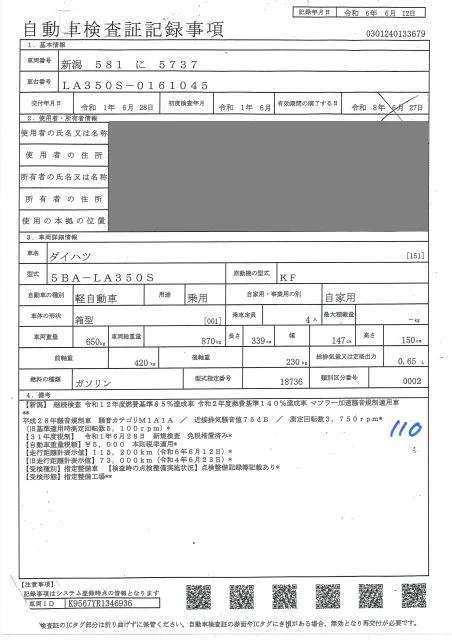 記録年月日 令和 6年 6月 12日
自動車検査証記録事項
0301240133679
1.基本情報
車両番号 新潟 581 に 5737
車台番号 LA350S-0161045
交付年月日 令和 1年 6月 28日 初度検査年月 令和 1年 6月 有効期間の満了する日 令和 8年 6月 27日
2.使用者・所有者情報
使用者の氏名又は名称
使用者の住所
所有者の氏名又は名称
所有者の住所
使用の本拠の位置
3.車両詳細情報
車名 ダイハツ [151]
型式 5BA-LA350S 原動機の型式 KF
自動車の種別 軽自動車 用途 乗用 自家用・事業用の別 自家用
車体の形状 箱型 [001] 乗車定員 4人 最大積載量 -kg
車両重量 650kg 車両総重量 870kg 長さ 339cm 幅 147cm 高さ 150cm
前軸重 420kg 後軸重 230kg 総排気量又は定格出力 0.65 L
燃料の種類 ガソリン 型式指定番号 18736 類別区分番号 0002
4.備考
【新潟】 継続検査 令和12年度燃費基準85%達成車 令和2年度燃費基準140%達成車 マフラー加速騒音規制適用車
**
平成28年騒音規制車 騒音カテゴリM1A1A / 近接排気騒音値75dB / 測定回転数3,750rpm*
(旧基準適用時測定回転数5,100rpm)*
【31年度税制】 令和1年6月28日 新規検査 免税措置済み*
【自動車重量税額】¥5,000 本則税率適用*
【走行距離計表示値】115,200km(令和6年6月12日)*
【旧走行距離計表示値】73,000km(令和4年6月23日)*
【受検種別】指定整備車 【検査時の点検整備実施状況】点検整備記録簿記載あり*
【受検形態】指定整備工場**
110
【注意事項】
記録事項はシステム登録時点の情報となります
車両ID K9567YR1346936
検査証のICタグ部分は折り曲げずに保管ください。自動車検査証の券面やICタグにき損がある場合、無効となり再交付が必要です。